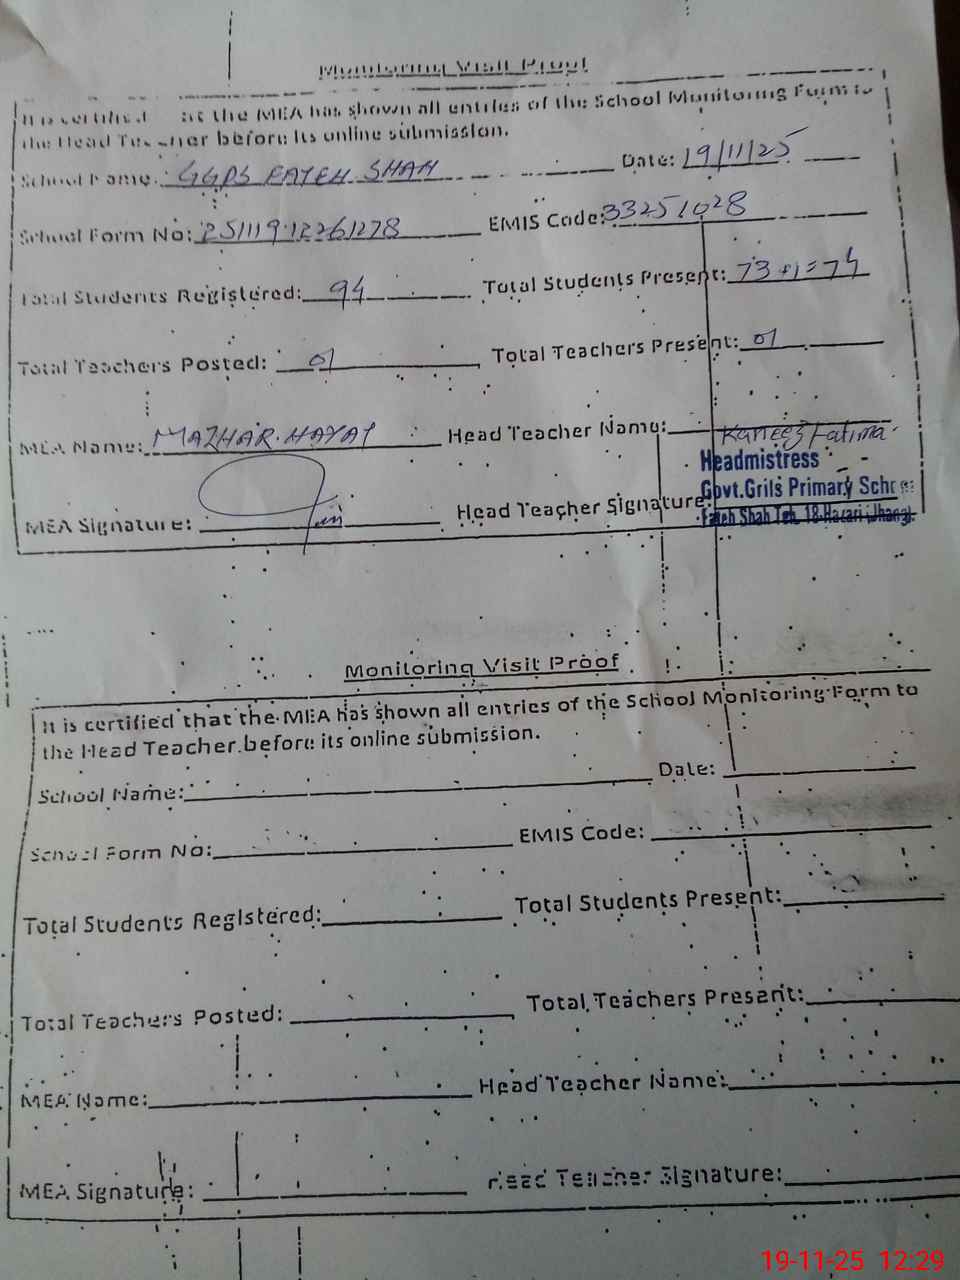 Monitoring Visit Proof
It is certified at the MEA has shown all entries of the School Monitoring Form to
the Head Teacher before its online submission.
School Name: GGPS FATEH SHAH Date: 19/11/25
School Form No: 25111912261278 EMIS Code: 33251028
Total Students Registered: 94 Total Students Present: 73+1=74
Total Teachers Posted: 01 Total Teachers Present: 01
MEA Name: MAZHAR HAYAT Head Teacher Name: Kaneez Fatima
MEA Signature: Head Teacher Signature:
Headmistress
Govt.Grils Primary
Fateh Shah Teh. 18-Hazari (Jhang).
Monitoring Visit Proof
It is certified that the MEA has shown all entries of the School Monitoring Form to
the Head Teacher before its online submission.
School Name: Date:
School Form No: EMIS Code:
Total Students Registered: Total Students Present:
Total Teachers Posted: Total Teachers Present:
MEA Name: Head Teacher Name:
MEA Signature: Head Teacher Signature:
19-11-25 12:29